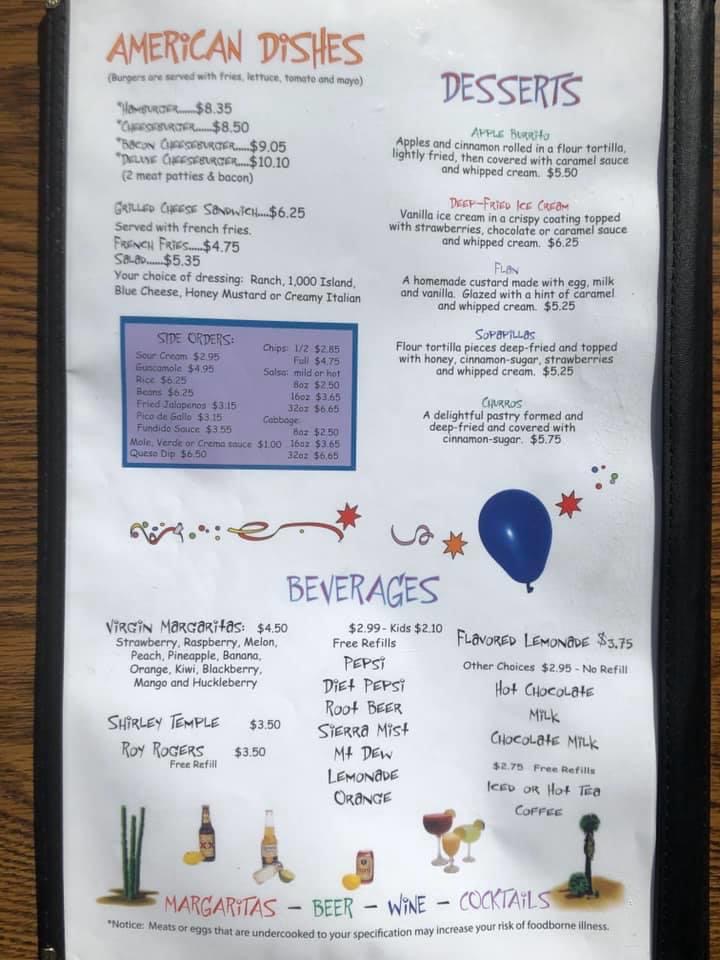 AMERICAN DISHES
(Burgers are served with fries, lettuce, tomato and mayo)
*Hamburger.....$8.35
*Cheeseburger.....$8.50
*Bacon Cheeseburger.....$9.05
*Deluxe Cheeseburger....$10.10
(2 meat patties & bacon)
Grilled Cheese Sandwich....$6.25
Served with french fries.
French Fries.....$4.75
Salad......$5.35
Your choice of dressing: Ranch, 1,000 Island,
Blue Cheese, Honey Mustard or Creamy Italian
SIDE ORDERS:
Sour Cream $2.95
Guacamole $4.95
Rice $6.25
Beans $6.25
Fried Jalapenos $3.15
Pico de Gallo $3.15
Fundido Sauce $3.55
Mole, Verde or Crema sauce $1.00
Queso Dip $6.50
Chips: 1/2 $2.85
Full $4.75
Salsa: mild or hot
8oz $2.50
16oz $3.65
32oz $6.65
Cabbage:
8oz $2.50
16oz $3.65
32oz $6.65
DESSERTS
Apple Burrito
Apples and cinnamon rolled in a flour tortilla,
lightly fried, then covered with caramel sauce
and whipped cream. $5.50
Deep-Fried Ice Cream
Vanilla ice cream in a crispy coating topped
with strawberries, chocolate or caramel sauce
and whipped cream. $6.25
Flan
A homemade custard made with egg, milk
and vanilla. Glazed with a hint of caramel
and whipped cream. $5.25
Sopapillas
Flour tortilla pieces deep-fried and topped
with honey, cinnamon-sugar, strawberries
and whipped cream. $5.25
Churros
A delightful pastry formed and
deep-fried and covered with
cinnamon-sugar. $5.75
BEVERAGES
Virgin Margaritas: $4.50
Strawberry, Raspberry, Melon,
Peach, Pineapple, Banana,
Orange, Kiwi, Blackberry,
Mango and Huckleberry
Shirley Temple $3.50
Roy Rogers $3.50
Free Refill
$2.99 - Kids $2.10
Free Refills
Pepsi
Diet Pepsi
Root Beer
Sierra Mist
Mt Dew
Lemonade
Orange
Flavored Lemonade $3.75
Other Choices $2.95 - No Refill
Hot Chocolate
Milk
Chocolate Milk
$2.75 Free Refills
Iced or Hot Tea
Coffee
XX
MARGARITAS - BEER - WINE - COCKTAILS
*Notice: Meats or eggs that are undercooked to your specification may increase your risk of foodborne illness.